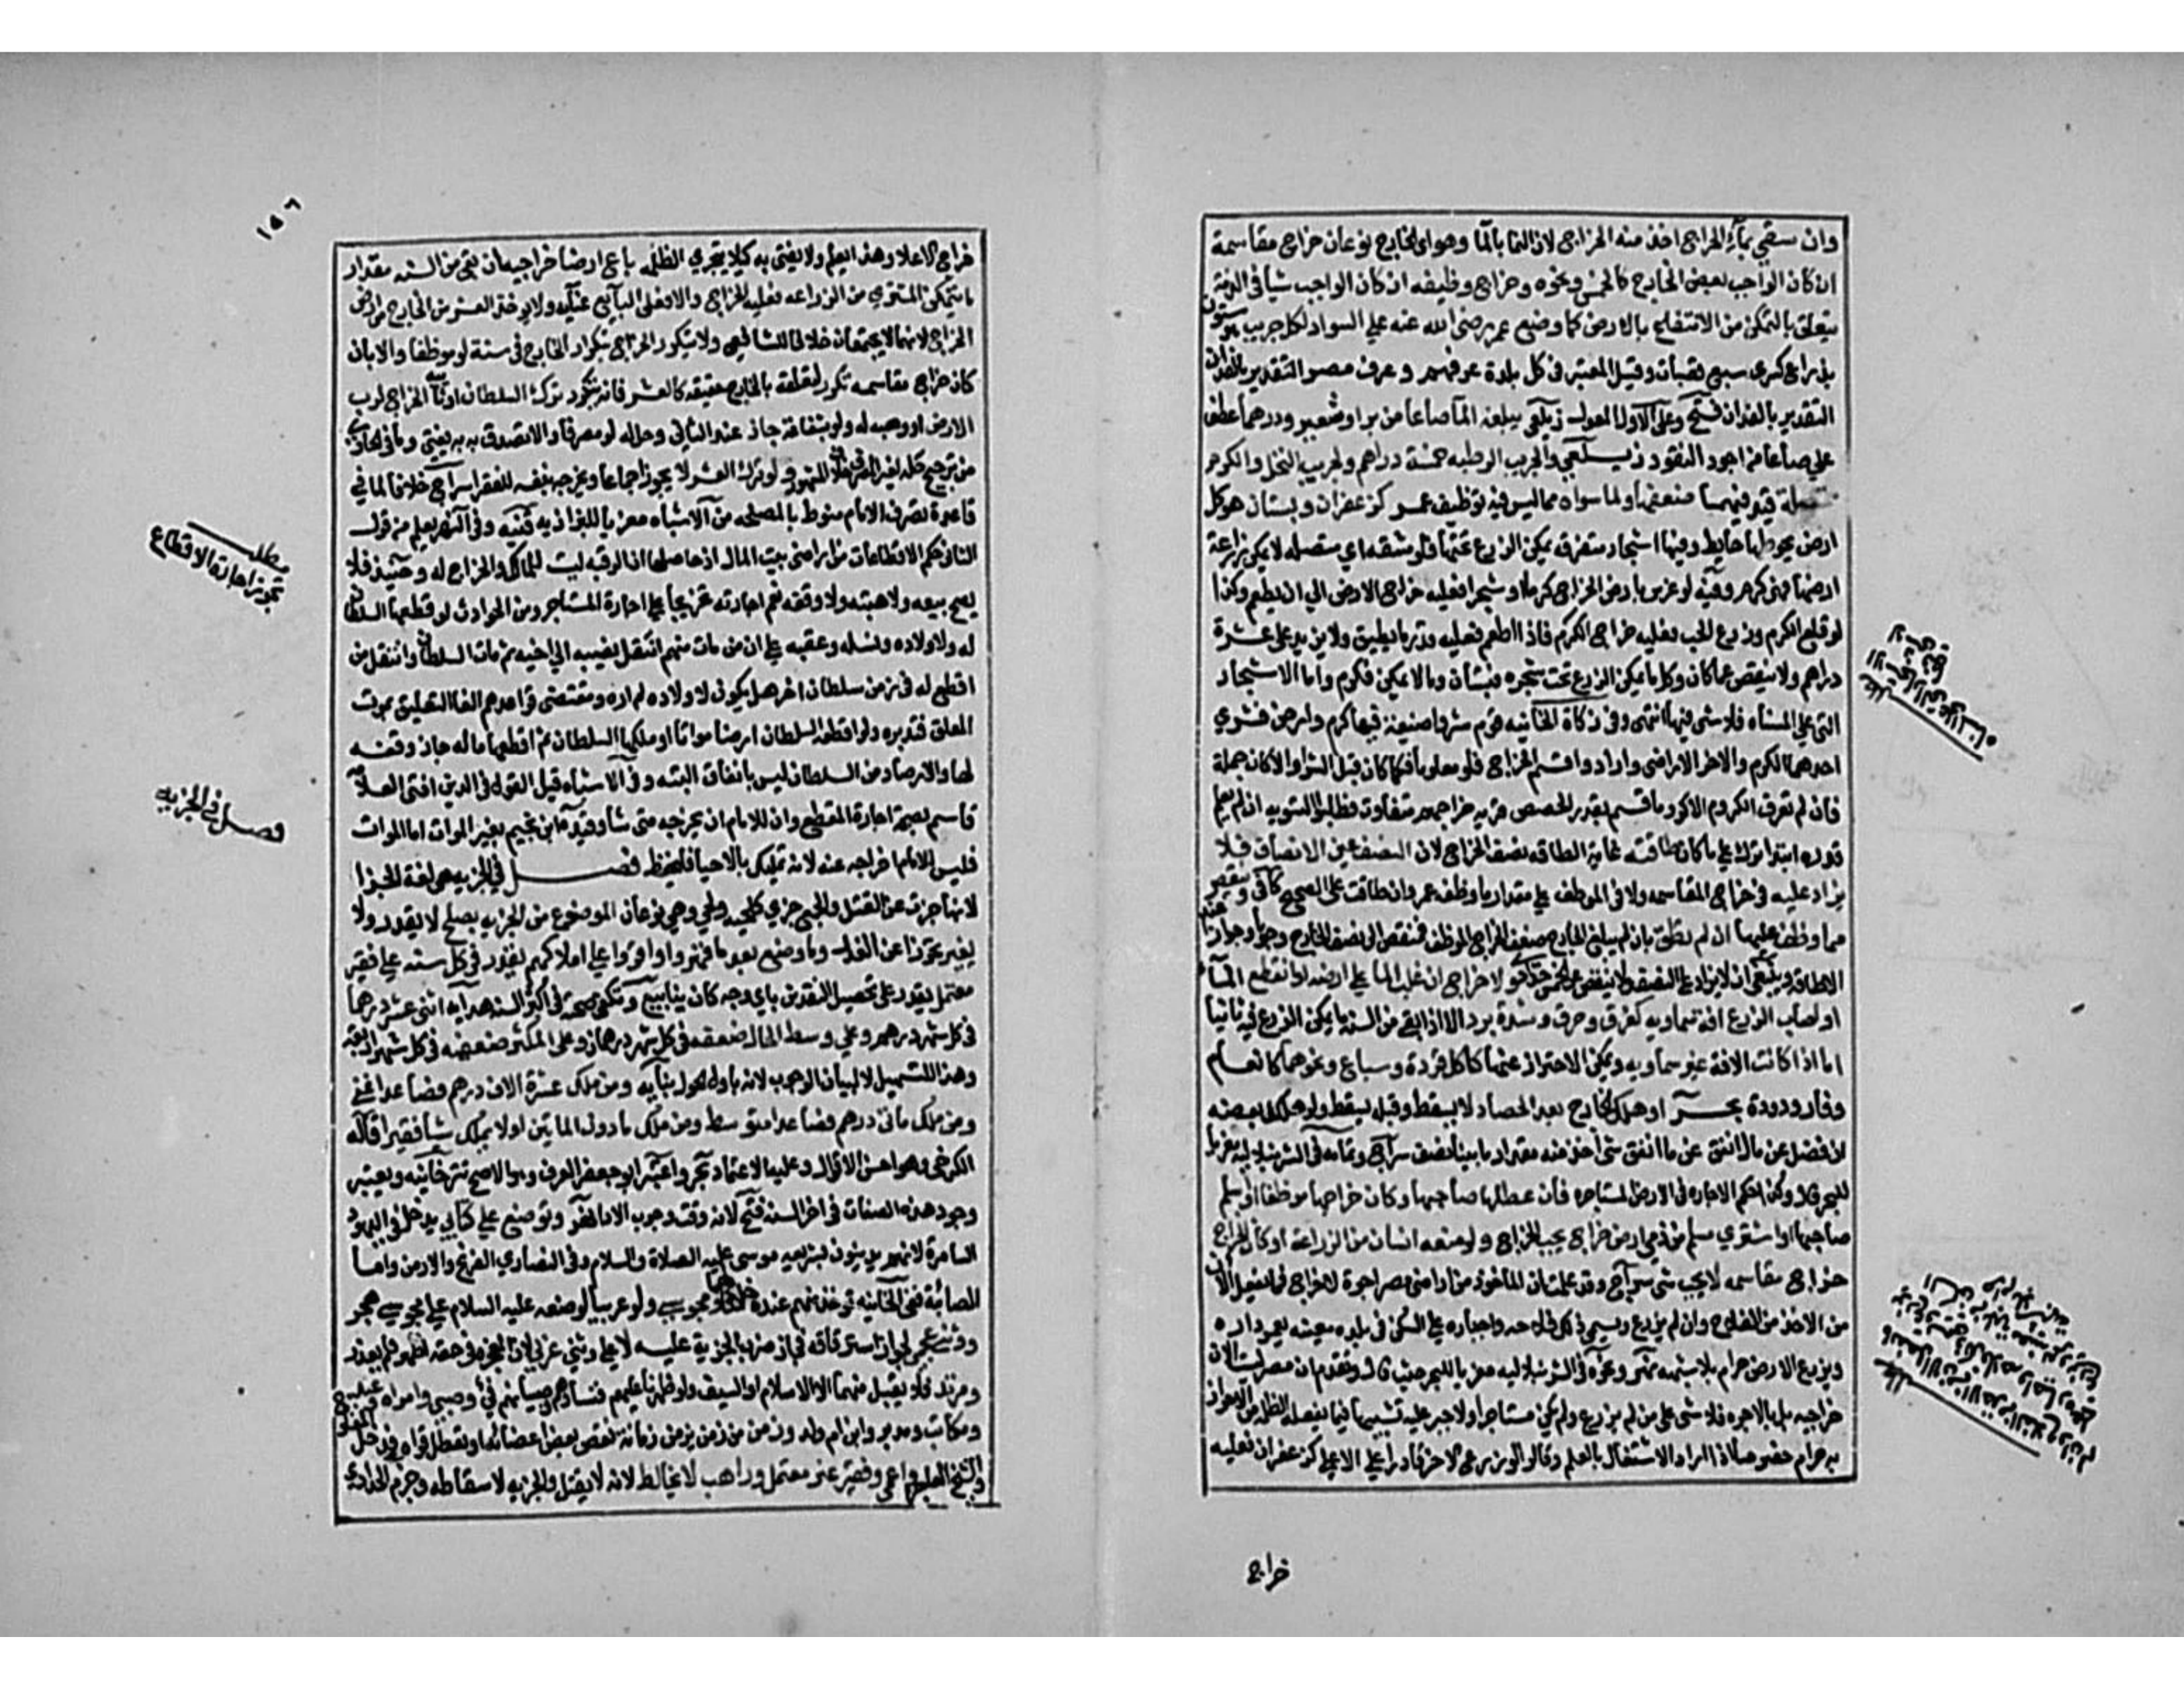 وان سقي بماء الخراج اخذ منه الخراج لان النما بالما وهو اي الخارج نوعان خراج مقاسمة
ان كان الواجب بعض الخارج كالخمس ونحوه وخراج وظيفه ان كان الواجب شيا في الذمة
يتعلق بالتمكن من الانتفاع بالارض كما وضع عمر رضي الله عنه علي السواد لكل جريب هو ستون
بذراع كسري سبع قبضات وقيل المعتبر في كل بلدة عرفهم وعرف مصر التقدير بالفدان
التقدير بالفدان فتح وعلى الاول المعول يبلغه الما صاعا من بر او شعير ودرهما عطف
علي صاعا من اجود النقود زيلعي ولجريب الرطبه خمسة دراهم ولجريب النخل والكرم
متصلة قيد فيهما ضعفها ولما سواه مما ليس فيه توظيف عمر كزعفران وبستان هو كل
ارض يحوطها حايط وفيها اشجار متفرقه يمكن الزرع تحتها فلو متصله لا يمكن زراعة
ارضها فهي كرم وفيه لو غرس بارض الخراج كرما او شجرا فعليه خراج الارض الي ان يطعم وكذا
لو قلع الكرم وزرع الحب فعليه خراج الكرم فاذا اطعم فعليه قدر ما يطيق ولا يزيد على عشرة
دراهم ولا ينقص عما كان وكل ما يمكن الزرع تحت شجره فبستان وما لا يمكن فكرم واما الاشجار
التي علي المسناه فلا شي فيها انتهى وفي زكاة الخانيه قوم شروا ضيعة فيها كرم وارض فشري
احدهما الكرم والاخر الاراضي وارادوا قسم الخراج فلو معلوما فكما كان قبل الشرا والا كان جملة
فان لم تعرف الكروم الا كروما قسم بقدر الحصص قرية خراجهم متفاوت فطلبوا التسويه ان لم يعلم
قدره ابتدا ترك علي ما كان غاية الطاقه نصف الخراج لان التنصيف عين الانصاف فلا
يزاد عليه في خراج المقاسمه ولا في الموظف علي مقدار ما وظفه عمر وان طاقت على الصحيح كافي وينقص
مما وظف عليها ان لم تطق بان لم يبلغ الخارج ضعف الخراج الموظف فينقص الى نصف الخارج وجوبا وجوازا عند
الاطاقه وينبغي ان لا يزاد على النصف ولا ينقص عن الخمس حدادي ولا خراج ان غلب الما علي ارضه او انقطع الما
او اصاب الزرع افة سماويه كغرق وحرق وشدة برد الا اذا بقي من السنة ما يمكن الزرع فيه ثانيا
اما اذا كانت الافة غير سماويه ويمكن الاحتراز عنها كاكل قردة وسباع ونحوهما كانعام
وفار ودودة بحر او هلك الخارج بعد الحصاد لا يسقط وقبله يسقط ولو هلك بعضه
ان فضل عن ما انفق شي اخذ منه مقدار ما بينا نصف سراج وتمامه في الشرنبلاليه معزيا
للبحر قال وكذا حكم الاجاره في الارض المستاجره فان عطلها صاحبها وكان خراجها موظفا او اسلم
صاحبها او اشتري مسلم من ذمي ارض خراج يجب الخراج ولو منعه انسان من الزراعة او كان الخراج
خراج مقاسمه لا يجب شي سراج وقد علمت ان الماخوذ من اراضي مصر اجرة لا خراج فما يفعل الان
من الاخذ من الفلاح وان لم يزرع ويسمي ذلك فلاحه واجباره علي السكن في بلده معينه يعمر داره
ويزرع الارض حرام بلا شبهه نهر ونحوه في الشرنبلاليه معزيا للبحر حيث قال وتقدم ان مصر الان
خراجيه بل بالاجره فلا شي على من لم يزرع ولم يكن مستاجرا ولا جبر عليه بسببها فما يفعله الظلمة من الاضرار
به حرام خصوصا اذا اراد الاشتغال بالعلم وقالوا لو زرع الاخس قادرا علي الاعلي كزعفران فعليه
خراج
١٥٦
خراج الاعلا وهذا يعلم ولا يفتي به كيلا يتجري الظلمه باع ارضا خراجيه ان بقي من السنه مقدار
ما يتمكن المشتري من الزراعه فعليه الخراج والا فعلى البايع عنايه ولا يوخذ العشر من الخارج من ارض
الخراج لانهما لا يجتمعان خلافا للشافعي ولا يتكرر الخراج بتكرار الخارج في سنة لو موظفا والا بان
كان خراج مقاسمه تكرر لتعلقه بالخارج حقيقه كالعشر فانه يتكرر ترك السلطان او نايبه الخراج لرب
الارض او وهبه له ولو بشفاعة جاز عند الثاني وحل له لو مصرفا والا تصدق به به يفتي وما في الحاوي
من ترجيح حله لغير المصرف خلاف المشهور ولو ترك العشر لا يجوز اجماعا ويخرجه بنفسه للفقرا سراج خلافا لما في
قاعدة تصرف الامام منوط بالمصلحه من الاشباه معزيا للبزازيه فتنبه وفي النهر يعلم من قول
الثاني حكم الاقطاعات من اراضي بيت المال اذ حاصلها ان الرقبه لبيت المال والخراج له وحينيذ فلا
يصح بيعه ولا هبته ولا وقفه نعم اجارته تخريجا علي اجارة المستاجر ومن الحوادث لو اقطعها السلطان
له ولاولاده ونسله وعقبه علي ان من مات منهم انتقل نصيبه الي اخيه ثم مات السلطان وانتقل من
اقطع له في زمن سلطان اخر هل يكون لاولاده لم اره ومقتضى قواعدهم الغا التعليق بموت
المعلق فتدبره ولو اقطعه السلطان ارضا مواتا او ملكها السلطان ثم اقطعها ما له جاز وقفه
لها والارصاد من السلطان ليس بايقاف البته وفي الاشباه قبيل القول في الدين افتى العلامه
قاسم بصحة اجارة المقطع وان للامام ان يخرجه متى شا وقيده ابن نجيم بغير الموات اما الموات
فليس للامام اخراجه عنه لانه تملكه بالاحيا فليحفظ فصل في الجزيه هي لغة الجزا
لانها جزت عن القتل والجمع جزي كلحيه ولحي وهي نوعان الموضوع من الجزيه بصلح لا يقدر ولا
يغير تحرزا عن الغدر وما وضع بعد ما قهروا واقروا علي املاكهم يقدر في كل سنه علي فقير
معتمل يقدر على تحصيل النقدين باي وجه كان ينابيع وتكفي صحته في اكثر السنه هدايه اثنى عشر درهما
في كل شهر درهم وعلي وسط الحال ضعفه في كل شهر درهمان وعلى المكثر ضعفه في كل شهر اربعه
وهذا للتسهيل لا لبيان الوجوب لانه باول الحول بنايه ومن ملك عشرة الاف درهم فصاعدا غني
ومن ملك ماتي درهم فصاعدا متوسط ومن ملك ما دون الماتين او لا يملك شيا فقير قاله
الكرخي وهو احسن الاقوال وعليه الاعتماد بحر واعتبر ابو جعفر العرف وهو الاصح تتر خانيه ويعتبر
وجود هذه الصفات في اخر السنه فتح لانه وقت وجوب الادا نهر وتوضع علي كتابي يدخل في اليهود
السامرة لانهم يدينون بشريعه موسى عليه الصلاة والسلام وفي النصاري الفرنج والارمن واما
الصابئة ففي الخانيه توخذ منهم عنده خلافا لهما ومجوسي ولو عربيا لوضعه عليه السلام علي مجوس هجر
ووثني عجمي لجواز استرقاقه فجاز ضرب الجزية عليه لا علي وثني عربي لان المعجزه في حقه اظهر فلم يعذر
ومرتد فلا يقبل منهما الا الاسلام او السيف ولو ظهرنا عليهم فنساوهم وصبيانهم في وصبي وامراه وعبد
ومكاتب ومدبر وابن ام ولد وزمن من زمن يزمن زمانة نقص بعض اعضائه او تعطل قواه فدخل المفلوج
والشيخ العاجز واعمى وفقير غير معتمل وراهب لا يخالط لانه لا يقتل والجزيه لاسقاطه وجزم الحدادي
مطلب
تجوز اجارة الاقطاع
فصل في الجزيه